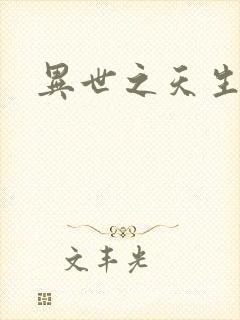 異世之天生
文丰光